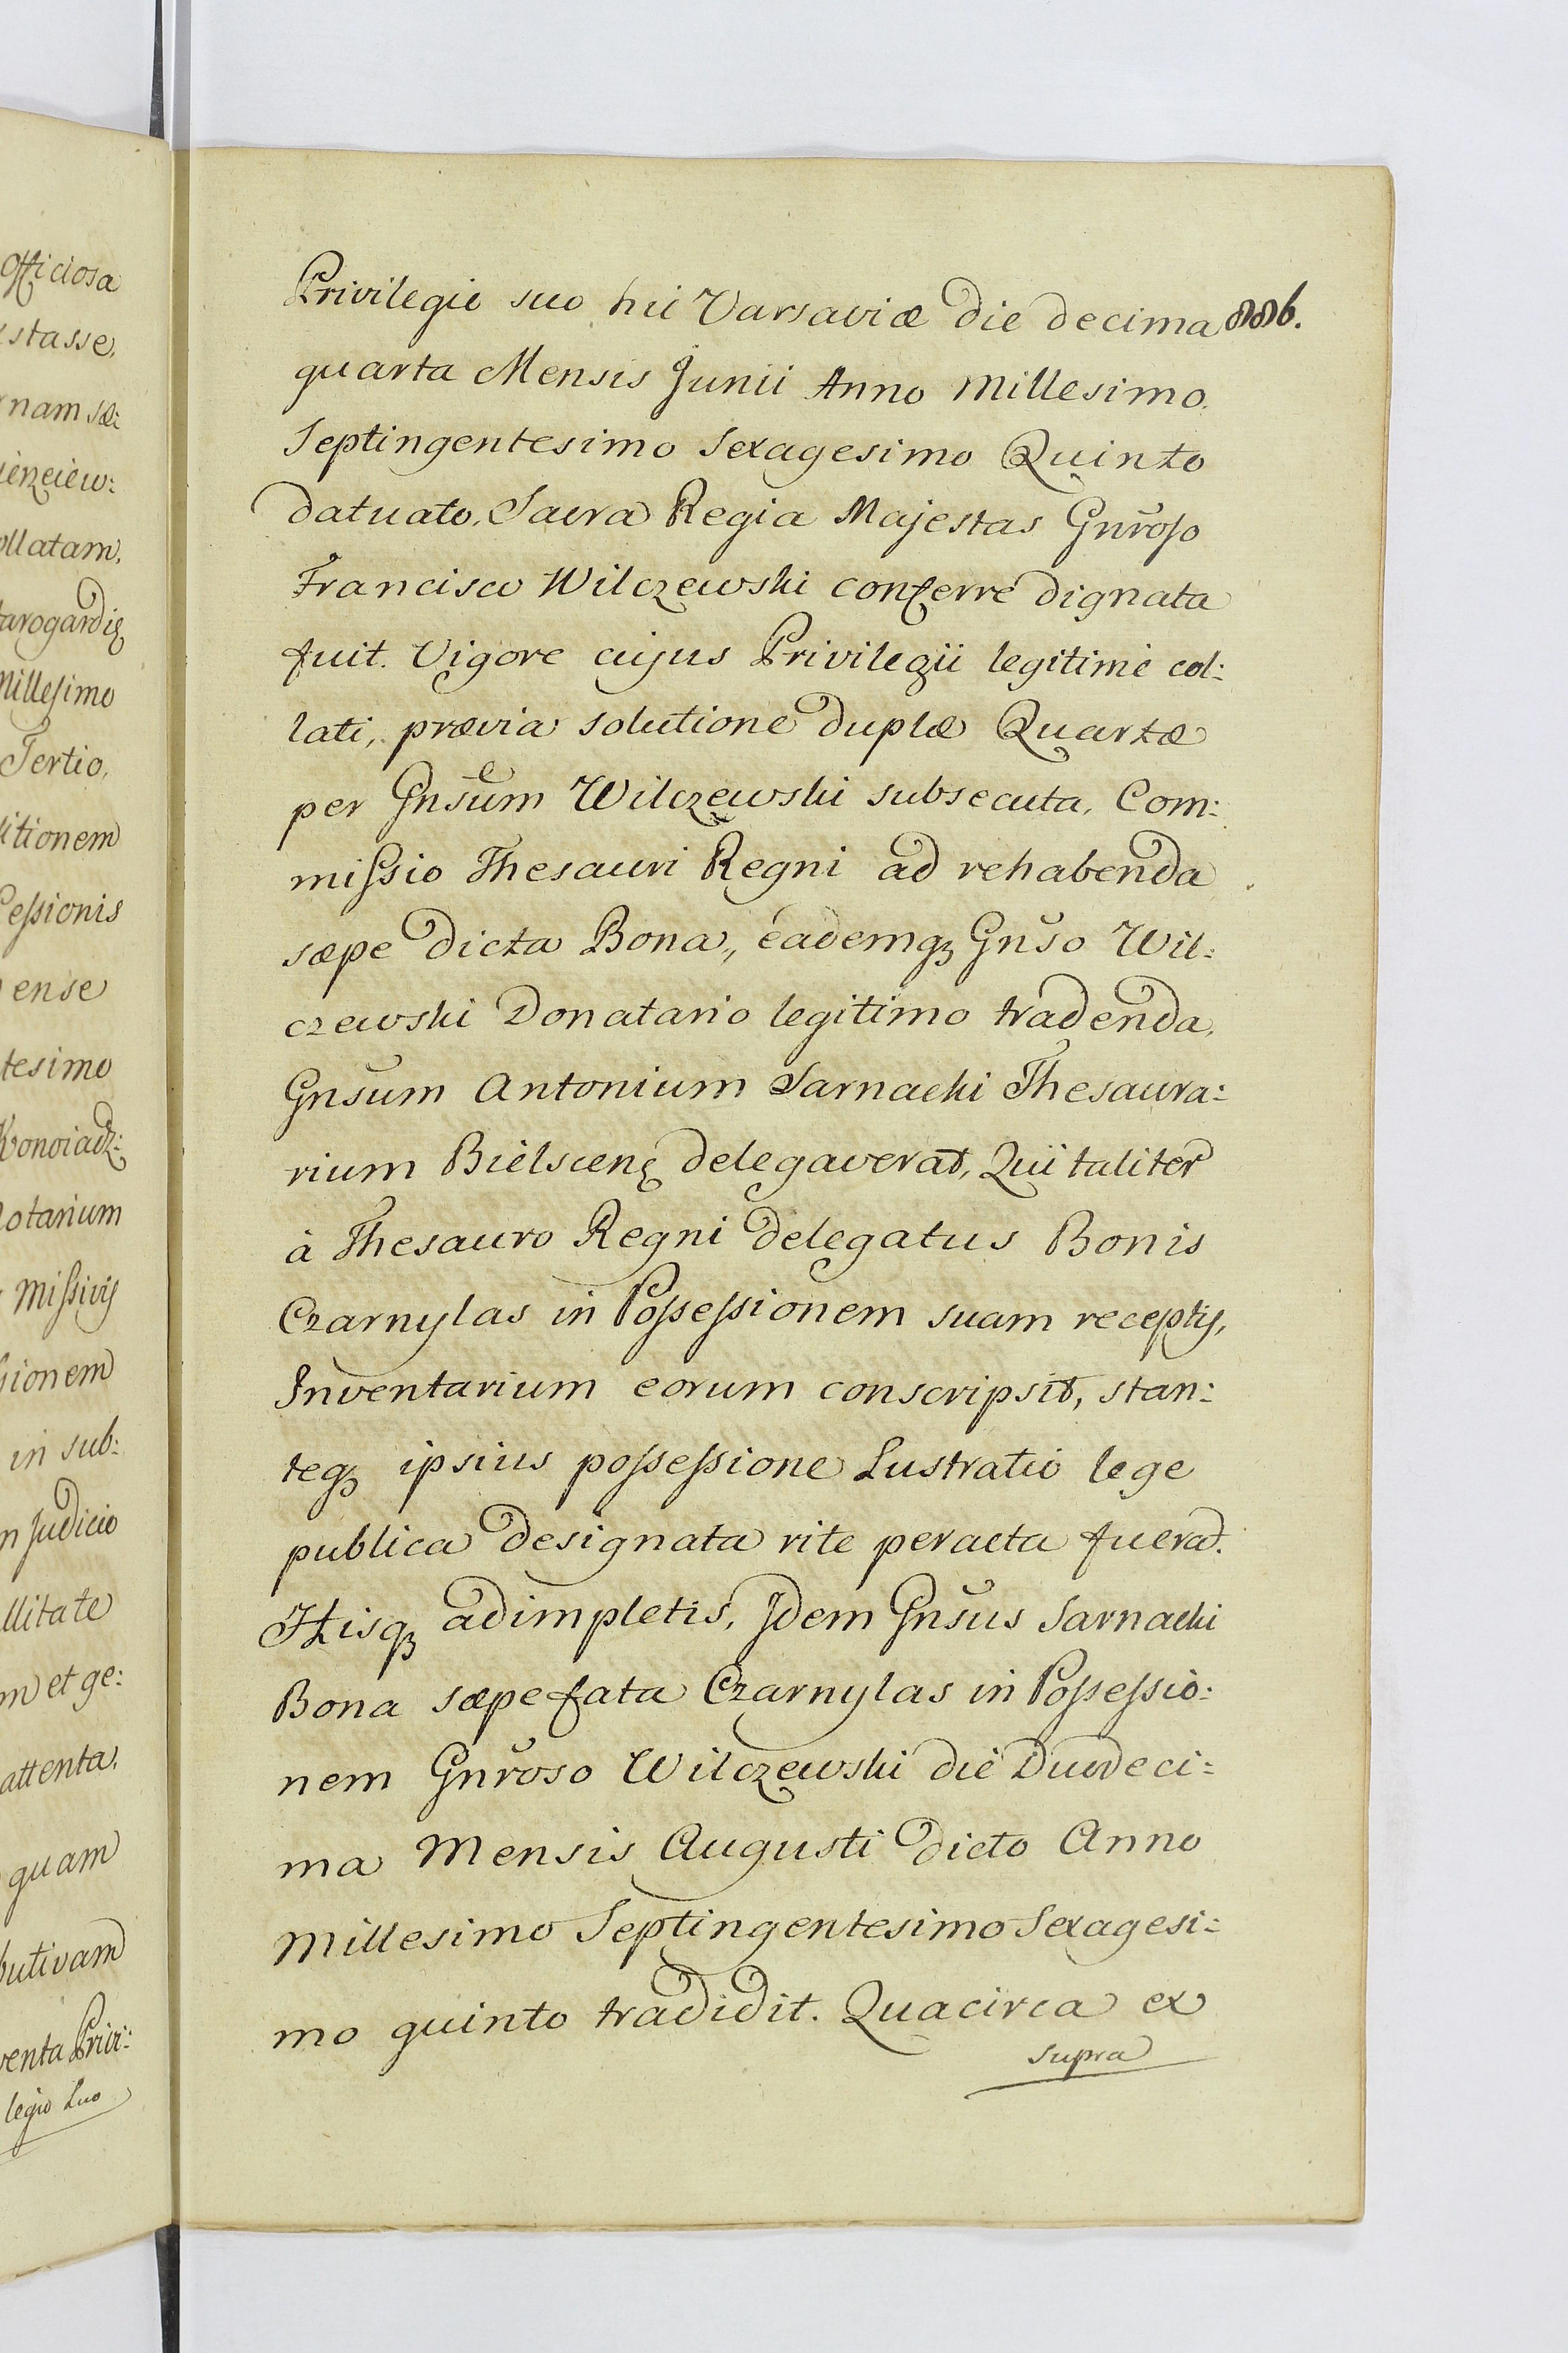 Officiosa
stasse.
nam sæ:
ienciew:
ollatam.
tarogardię
Millesimo
Tertio,
itionem
Cessionis
ense
tesimo
Konoiadz:
Notarium
Missivis
sionem
in sub:
n Judicio
llitate
m et ge:
attenta.
quam
butivam
venta Privi:
legio suo
886.
Privilegio suo hic Varsaviæ die decima
quarta Mensis Junii Anno Millesimo
Septingentesimo Sexagesimo Quinto
datuato, Sacra Regia Majestas Gnroso
Francisco Wilczewski conferre dignata
fuit. Vigore cujus Privilegii legitime col:
lati, prævia solutione duplæ Quartæ
per Gnsum Wilczewski subsecuta, Com:
missio Thesauri Regni ad rehabenda
sæpe dicta Bona, eademq₃ Gnso Wil:
czewski Donatario legitimo tradenda,
Gnsum Antonium Sarnacki Thesaura:
rium Bielscenę delegaverat, Qui taliter
à Thesauro Regni delegatus Bonis
Czarnylas in Possessionem suam receptis,
Inventarium eorum conscripsit, stan:
teq₃ ipsius possessione Lustratio lege
publica designata rite peracta fuerat.
Hisq₃ adimpletis, Idem Gnsus Sarnacki
Bona sæpefata Czarnylas in Possessio:
nem Gnroso Wilczewski die Duodeci:
ma Mensis Augusti dicto Anno
Millesimo Septingentesimo Sexagesi:
mo quinto tradidit. Quacirca ex
supra